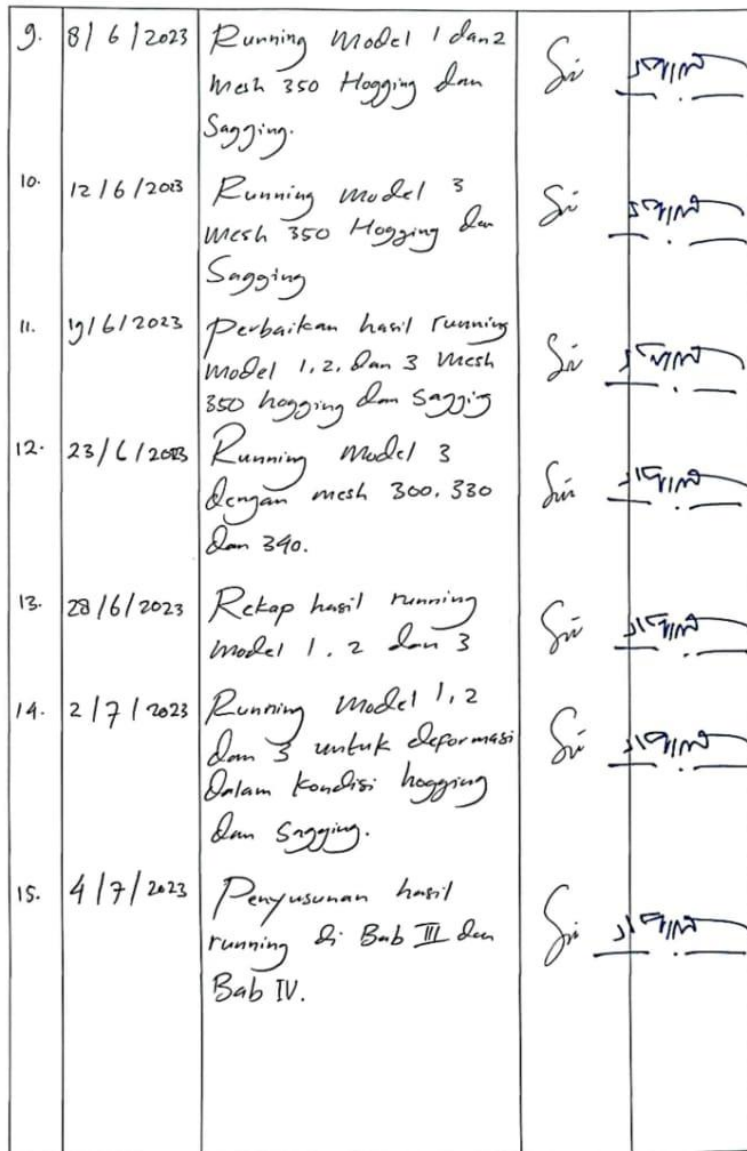 9. 8/6/2023 Running Model 1 dan 2
Mesh 350 Hogging dan
Sagging.
10. 12/6/2023 Running model 3
Mesh 350 Hogging dan
Sagging
11. 19/6/2023 Perbaikan hasil running
Model 1, 2, dan 3 Mesh
350 hogging dan saggig
12. 23/6/2023 Running Model 3
dengan mesh 300, 330
dan 340.
13. 28/6/2023 Rekap hasil running
model 1, 2 dan 3
14. 2/7/2023 Running Model 1, 2
dan 3 untuk deformasi
dalam kondisi hogging
dan sagging.
15. 4/7/2023 Penyusunan hasil
running di Bab III dan
Bab IV.